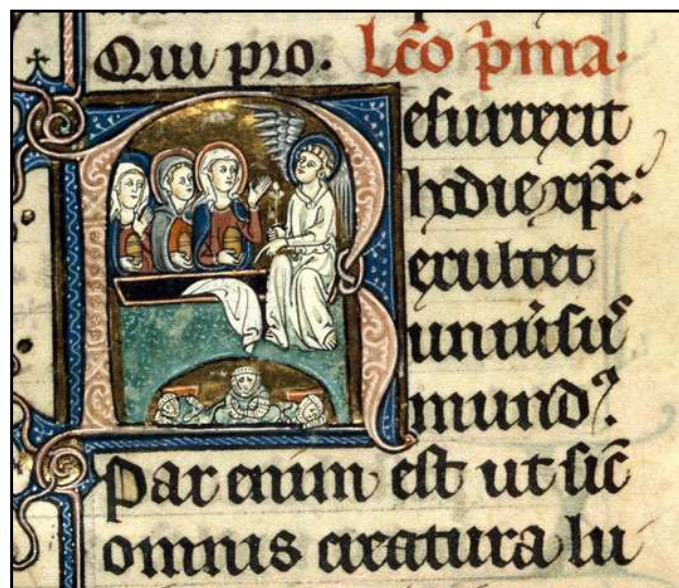 Qui pro. Lc̄o p̄ma.
Resurrexit
hodie xp̄c.
exultet
uniu̾sꝰ
mundꝰ.
Par enim est ut sic
omnis creatura lu